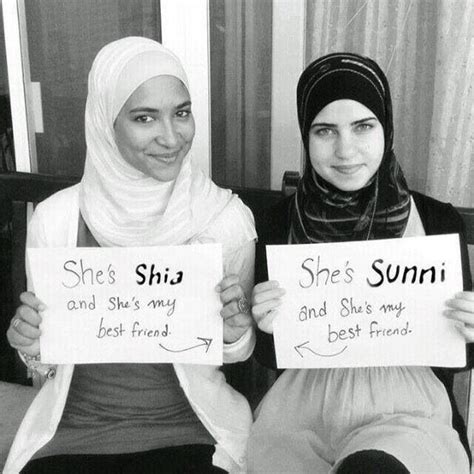 She's Shia
and she's my
best friend.
She's Sunni
and she's my
best friend.